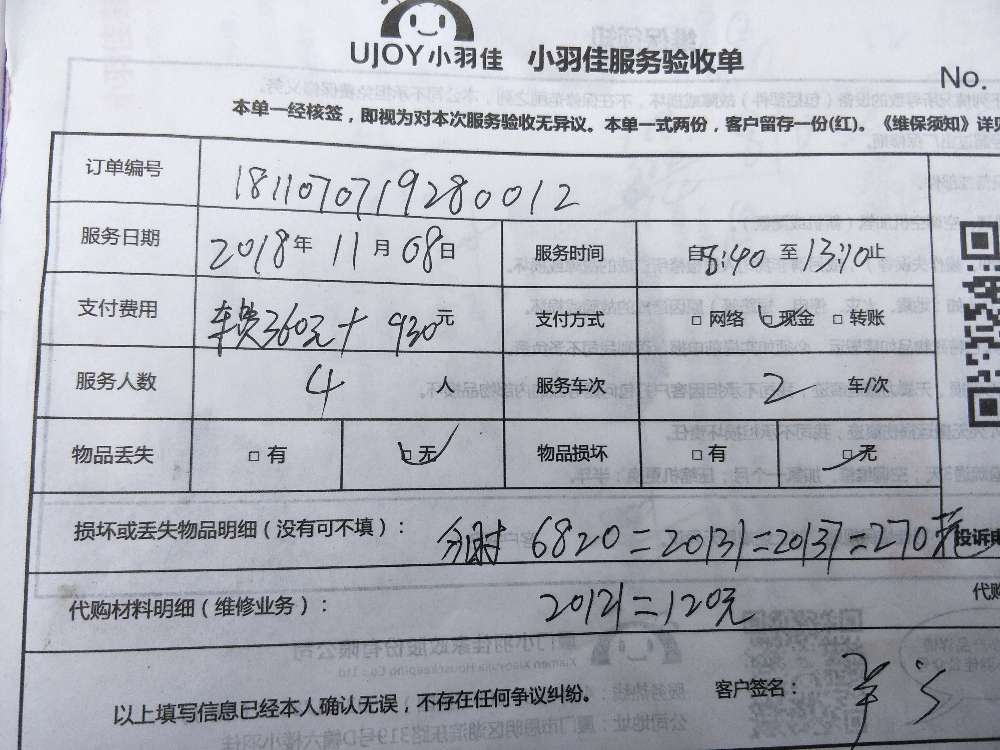 UJOY小羽佳 小羽佳服务验收单
No.
本单一经核签，即视为对本次服务验收无异议。本单一式两份，客户留存一份(红)。《维保须知》详见
订单编号 1811070719280012
服务日期 2018年 11月 08日 服务时间 自8:40 至 13:10止
支付费用 车费360元+ 930元 支付方式 □ 网络 □ 现金 □ 转账
服务人数 4 人 服务车次 2 车/次
物品丢失 □ 有 □ 无 物品损坏 □ 有 □ 无
损坏或丢失物品明细（没有可不填）： 6820=20131=20137=270元 投诉
代购材料明细（维修业务）： 20121=120元 代购
以上填写信息已经本人确认无误，不存在任何争议纠纷。 客户签名：